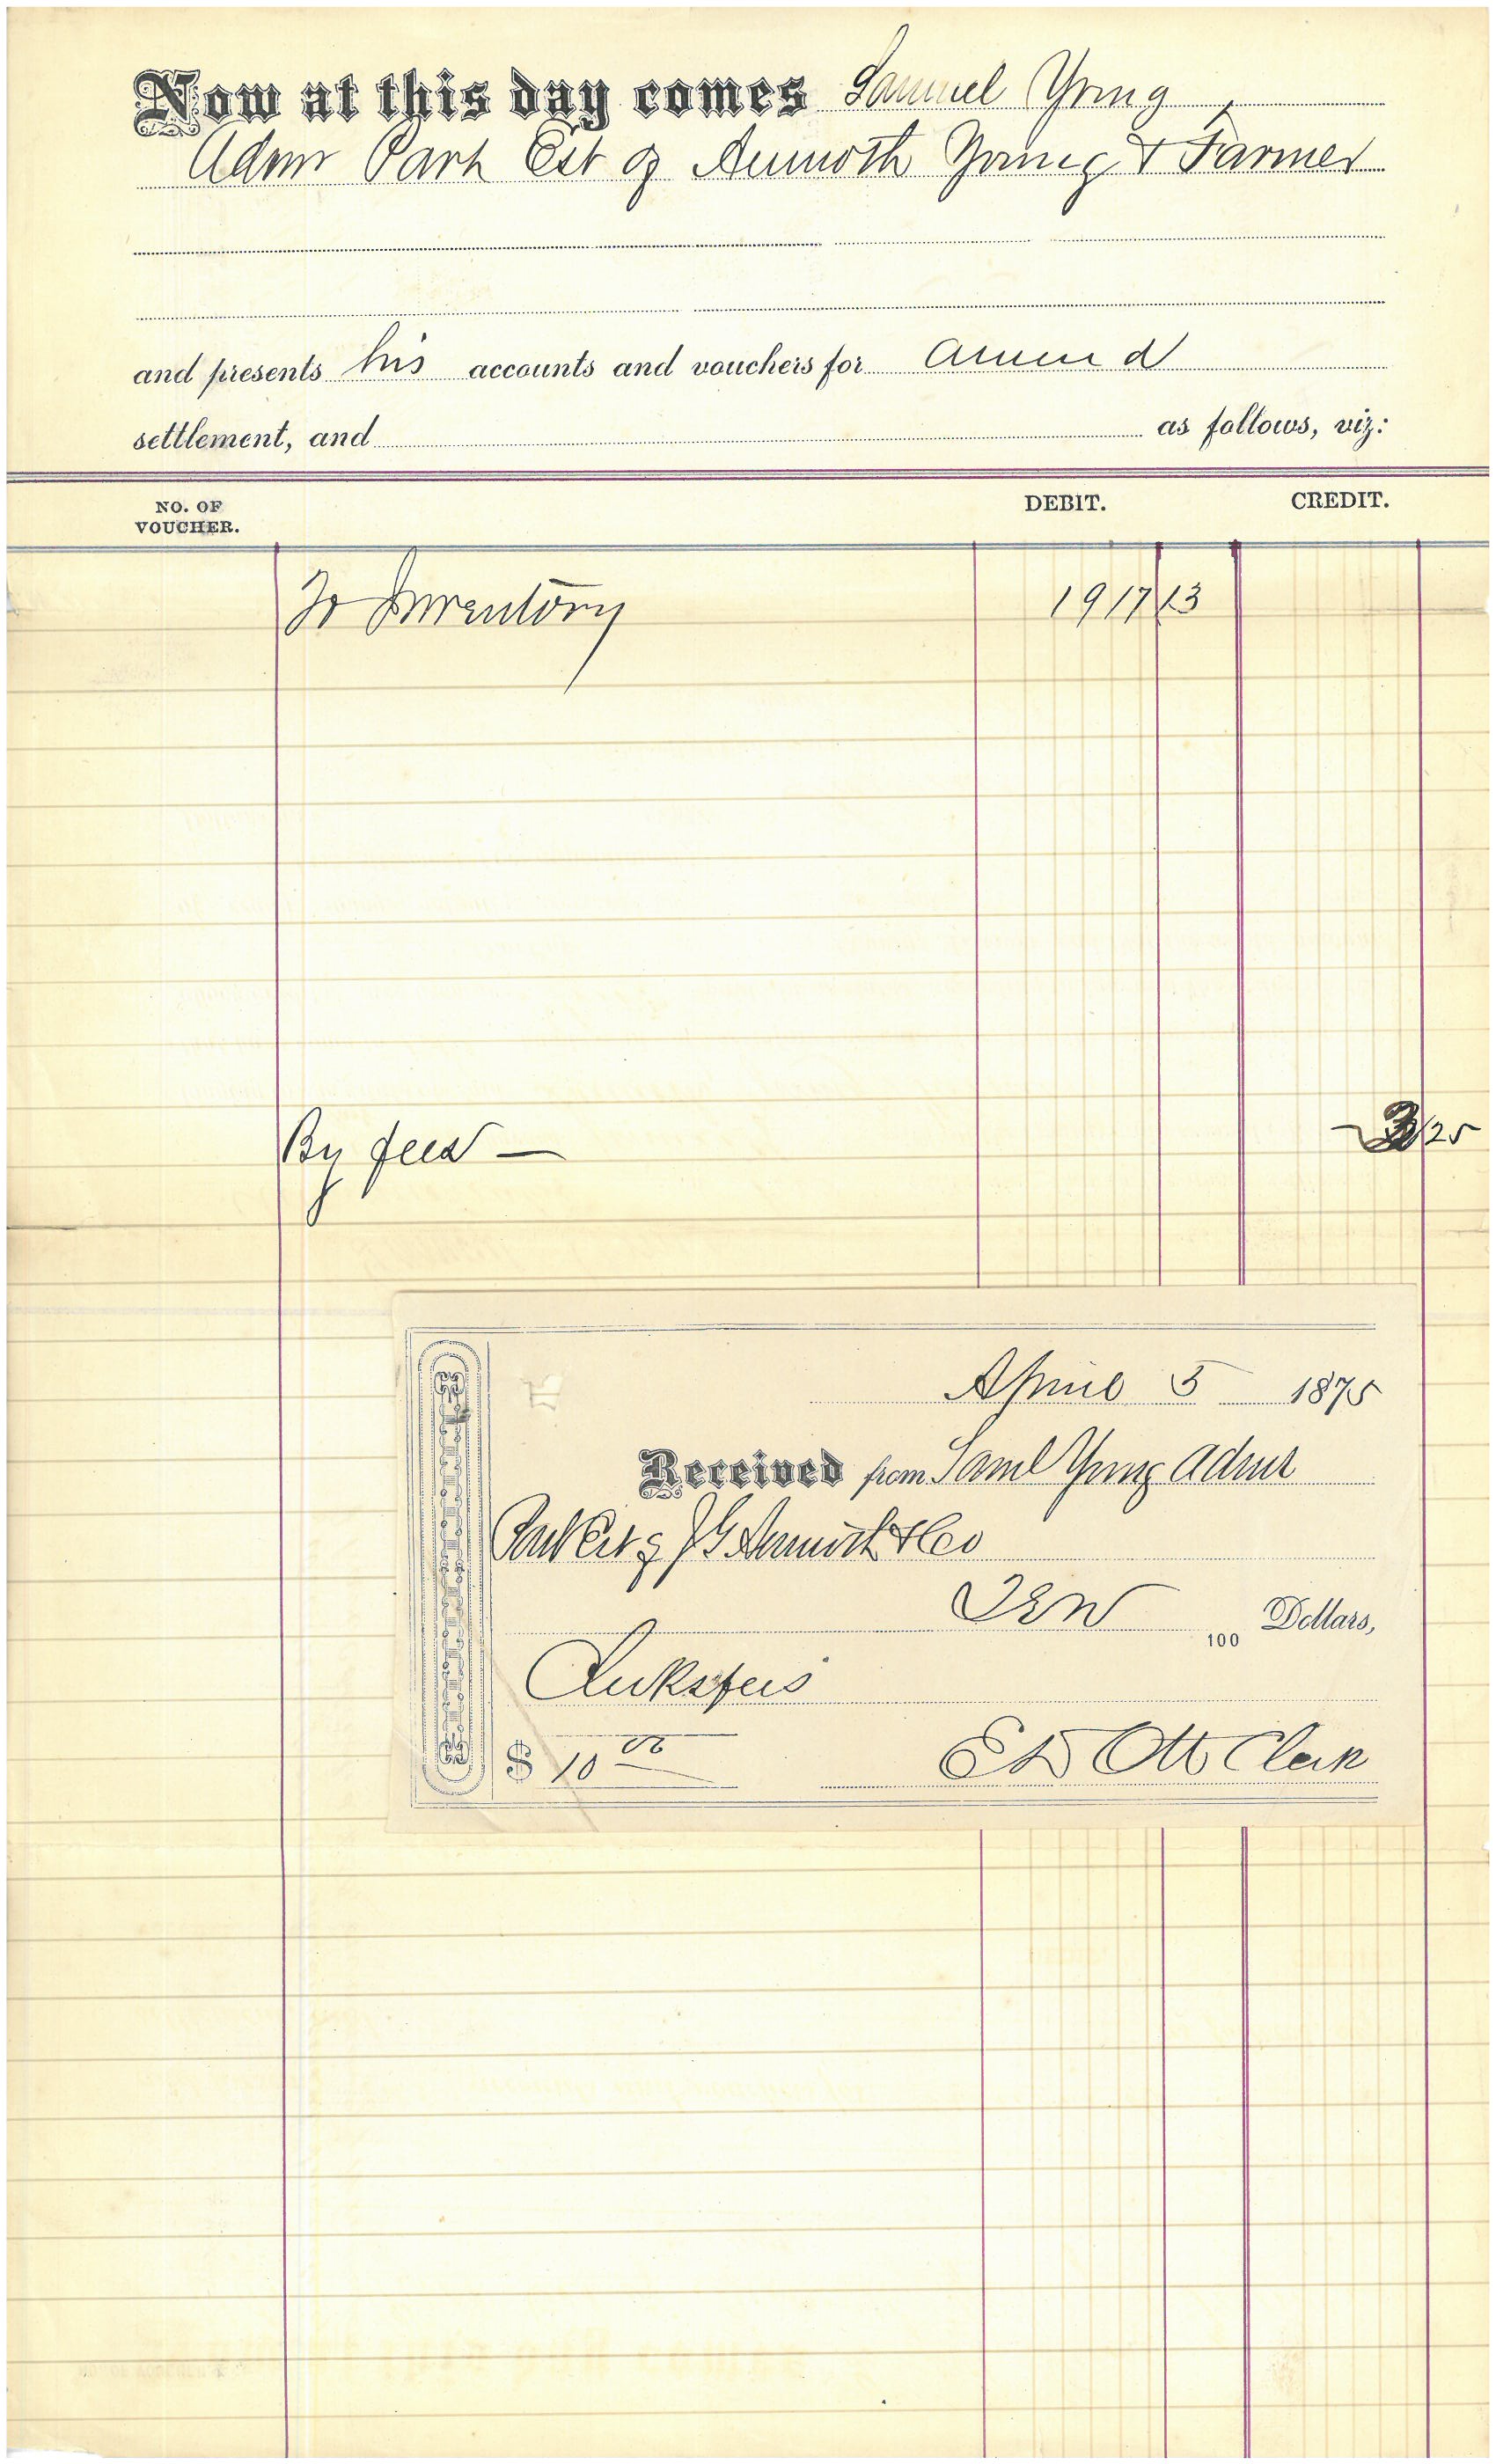 Now at this day comes Samuel Yong,
Admr Part Est of Aumoth Yong & Farmer
and presents his accounts and vouchers for
settlement, and as follows, viz:
NO. OF VOUCHER. DEBIT. CREDIT.
To Inventory 1917 13
By fees — 3 25
April 5 1875
Received from Saml Yong Admr
Part Est of J G Aumoth & Co
Ten 100 Dollars,
Clerks fees
$ 10 00 E D Ott Clerk